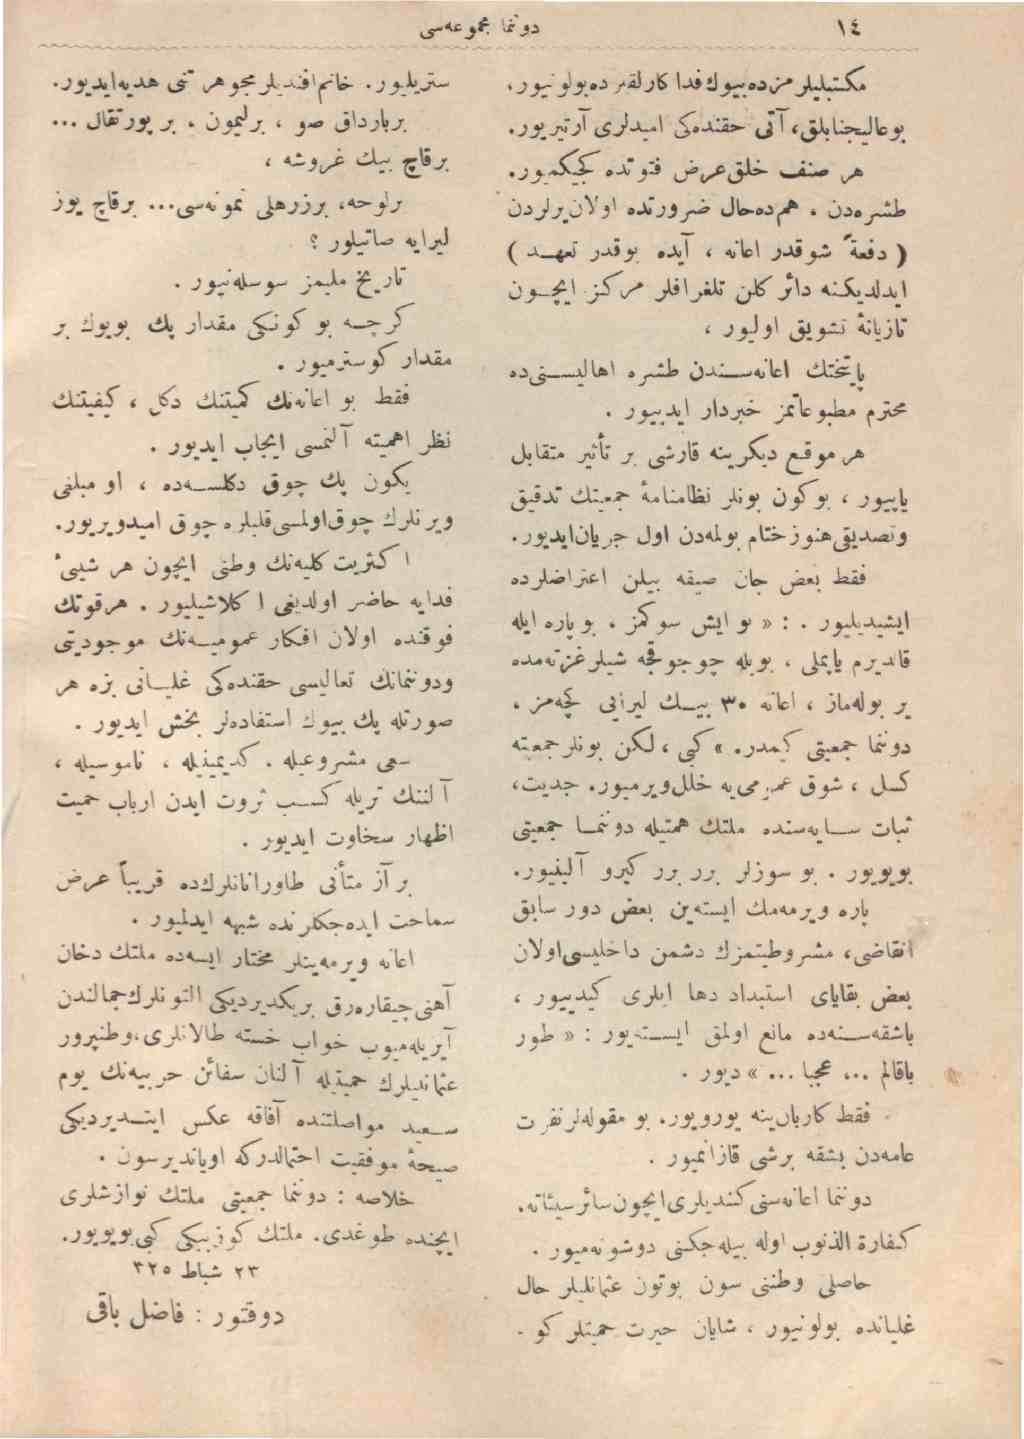 ١٤
دوننما مجموعه‌سی
مكتبليلر مزده‌بيوك‌فدا كارلقلرده‌بولونيور،
بوعاليجنابلق، آتی حقنده‌كی اميدلری آرتيريور.
هر صنف خلق‌عرض فتوتده كجيكميور.
طشره‌دن ، هم‌ده‌حال ضرورتده اولان‌يرلردن
( دفعةً شوقدر اعانه ، آيده بوقدر تعهد )
ايدلديكنه دائر كلن تلغرافلر مركز ايچون
تازيانۀ تشويق اوليور ،
پايتختك اعانه‌سندن طشره اهاليسنی‌ده
محترم مطبوعاتمز خبردار ايدييور .
هر موقع ديكرينه قارشی بر تأثير متقابل
ياپييور ، بوكون بونلر نظامنامۀ جمعيتك تدقيق
وتصديقی هنوز ختام بولمه‌دن اول جريان‌ايديور.
فقط بعض جان صيقه بيلن اعتراضلرده
ايشيديليور . : « بو ايش سوكمز ، بو پاره ايله
قالديرم ياپملی ، بويله چوجوقجه شيلر غزته‌مده
ير بوله‌ماز ، اعانه ٣٠ بيك ليرايی كچه‌مز ،
دوننما جمعيتی كيمدر. » كبی ، لكن بونلر جمعيته
كسل ، شوق عمومی‌يه خلل ويرميور. جديت،
ثبات سايه‌سنده ملتك همتيله دوننما جمعيتی
بويويور . بو سوزلر برر برر كيرو آلينيور.
پاره ويرمه‌مك ايسته‌ين بعض دور سابق
انقاضی، مشروطيتمزك دشمن داخليسی‌اولان
بعض بقايای استبداد دها ايلری كيدييور ،
باشقه‌سنه‌ده مانع اولمق ايسته‌يور : « طور
باقالم ... عجبا ... » ديور .
فقط كاربان‌ينه يورويور. بو مقوله‌لر نفرت
عامه‌دن بشقه برشی قازانميور .
دوننما اعانه‌سنی كنديلری‌ايچون‌سائر سيئاته،
كفارة الذنوب اوله بيله‌جكنی دوشونه‌ميور .
حاصلی وطننی سون بوتون عثمانليلر حال
غليانده بولونيور ، شايان حيرت حميتلر كو -
ستريليور. خانم‌افنديلر مجوهر تنی هديه‌ايديور.
بربارداق صو ، برليمون ، بر پورتقال ...
برقاچ بيك غروشه ،
برلوحه، برزرهلی نمونه‌سی... برقاچ يوز
ليرايه صاتيلور ؟
تاريخ مليمز سوسله‌نيور .
كرچه بو كونكی مقدار پك بويوك بر
مقدار كوسترميور .
فقط بو اعانه‌نك كميتنك دكل ، كيفيتنك
نظر اهميته آلنمسی ايجاب ايديور .
يكون پك چوق دكلسه‌ده ، او مبلغی
ويرنلرك چوق‌اولمسی‌قلبلره چوق اميدويريور.
اكثريت كليه‌نك وطنی ايچون هر شيئی
فدايه حاضر اولديغی اكلاشيليور . هرقوتك
فوقنده اولان افكار عموميه‌نك موجوديتی
ودوننمانك تعاليسی حقنده‌كی غليانی بزه هر
صورتله پك بيوك استفاده‌لر بخش ايديور .
سعی مشروعيله . كديمينيله ، ناموسيله ،
آلننك تريله كسب ثروت ايدن ارباب حميت
اظهار سخاوت ايديور .
بر آز متأنی طاورانانلرك‌ده قريباً عرض
سماحت ايده‌جكلرنده شبهه ايدلميور .
اعانه ويرمه‌ينلر مختار ايسه‌ده ملتك دخان
آهنی چيقاره‌رق بريكديرديكی التونلرك‌جمالندن
آيريله‌ميوب خواب خسته طالانلری،وطنپرور
عثمانليلرك حميتيله آلنان سفائن حربيه‌نك يوم
سعيد مواصلتنده آفاقه عكس ايتديرديكی
صيحۀ موفقيت احتمالدركه اوياندیرسون .
خلاصه : دوننما جمعيتی ملتك نوازشلری
ايچنده طوغدی. ملتك كوزبيكی كبی‌بويويور.
٢٣ شباط ٣٢٥
دوقتور : فاضل باقی